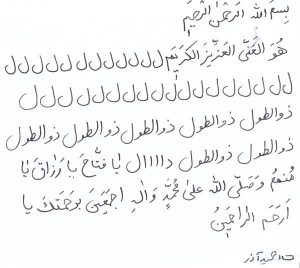 بِسمِ اللهِ الرَحمٰنِ الرَحیمِ
هُوَ الغَنّیُ العَزیزُ الکَریمُ ل ل ل ل ل ل ل ل ل ل ل
ل ل ل ل ل ل ل ل ل ل ل ل ل ل ل ل
ذوالطول ذوالطول ذوالطول ذوالطول ذوالطول
ذوالطول ذوالطول د ا ا ا ا ل یا فتّاحُ یا رَزّاقُ یا
مُنعِمُ وَ صَلّی اللهُ عَلیٰ مُحَمَّدٍ وَ الِهِ اَجمَعینَ بِرَحمَتِکَ یا
اَرحَمَ الراحِمینَ